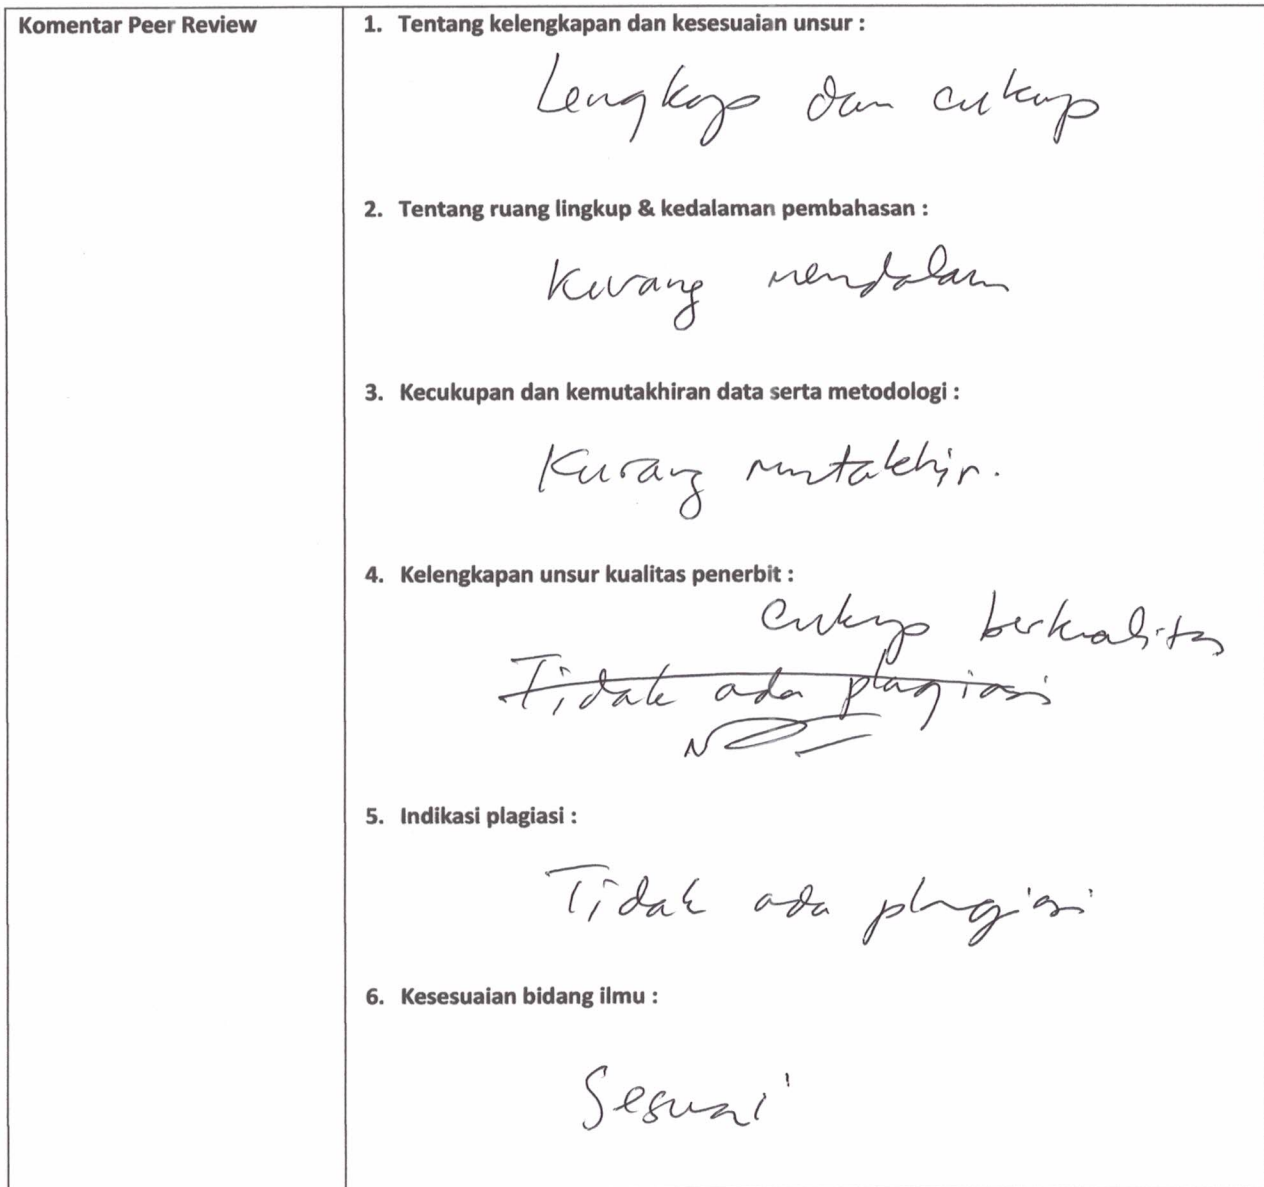 Komentar Peer Review
1. Tentang kelengkapan dan kesesuaian unsur :
Lengkap dan cukup
2. Tentang ruang lingkup & kedalaman pembahasan :
Kurang mendalam
3. Kecukupan dan kemutakhiran data serta metodologi :
Kurang mutakhir.
4. Kelengkapan unsur kualitas penerbit :
Cukup berkualitas
Tidak ada plagiasi
5. Indikasi plagiasi :
Tidak ada plagiasi
6. Kesesuaian bidang ilmu :
Sesuai